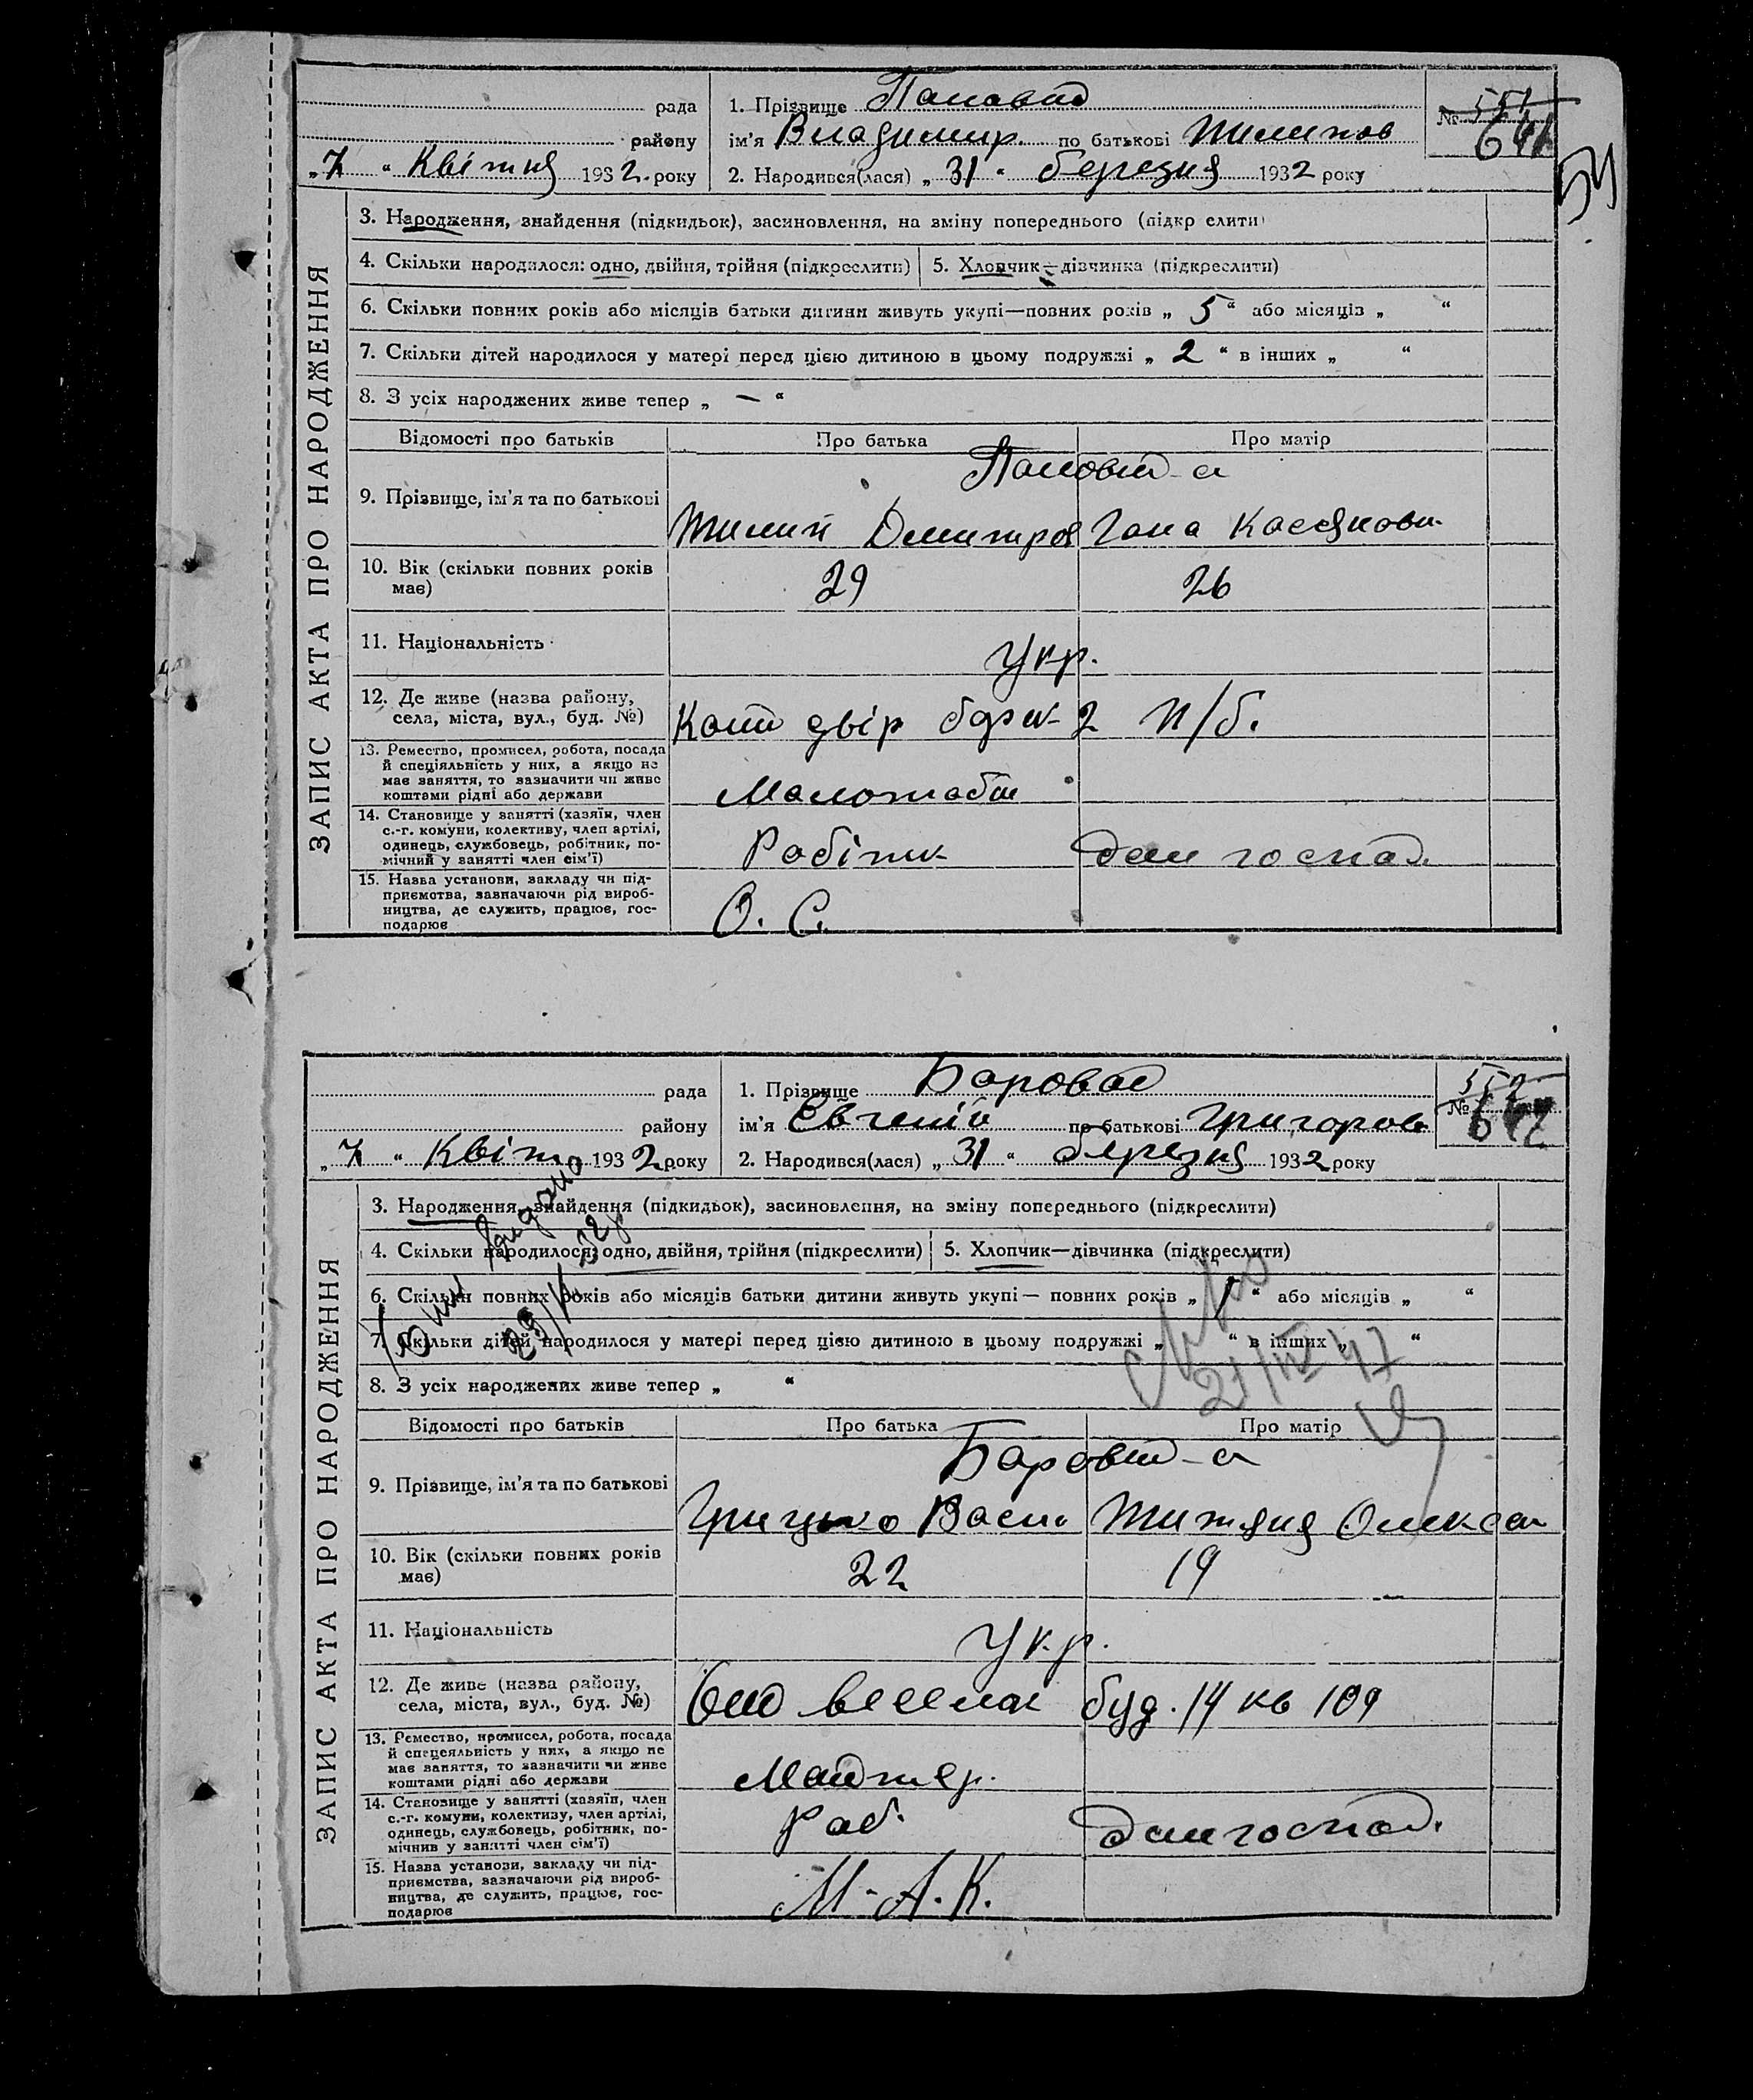 рада
району
„7“ Квітня 1932 року
1. Прізвище
ім'я Владимир. по батькові
2. Народився(лася) „31“ березня 1932 року
№ 551
641
ЗАПИС АКТА ПРО НАРОДЖЕННЯ
3. Народження, знайдення (підкидьок), засиновлення, на зміну попереднього (підкр слити)
4. Скільки народилося: одно, двійня, трійня (підкреслити)
5. Хлопчик—дівчинка (підкреслити)
6. Скільки повних років або місяців батьки дитини живуть укупі—повних років „5“ або місяців „ “
7. Скільки дітей народилося у матері перед цією дитиною в цьому подружжі „2“ в інших „ “
8. З усіх народжених живе тепер „—“
Відомості про батьків
Про батька
Про матір
9. Прізвище, ім'я та по батькові
10. Вік (скільки повних років
має)
29
26
11. Національність
Укр.
12. Де живе (назва району,
села, міста, вул., буд. №)
двір 2 п/б.
13. Ремество, промисел, робота, посада
й спеціяльність у них, а якщо не
має заняття, то зазначити чи живе
коштами рідні або держави
14. Становище у занятті (хазяїн, член
с.-г. комуни, колективу, член артілі,
одинець, службовець, робітник, по-
мічний у занятті член сім'ї)
Робітник
дом господ.
15. Назва установи, закладу чи під-
приємства, зазначаючи рід вироб-
ництва, де служить, працює, гос-
подарює
О. С.
рада
району
„7“ Квітн 1932 року
1. Прізвище Боровой
ім'я Євгеній по батькові Григоров
2. Народився(лася) „31“ березня 1932 року
552
№ 642
ЗАПИС АКТА ПРО НАРОДЖЕННЯ
3. Народження, знайдення (підкидьок), засиновлення, на зміну попереднього (підкреслити)
4. Скільки народилося: одно, двійня, трійня (підкреслити)
5. Хлопчик—дівчинка (підкреслити)
6. Скільки повних років або місяців батьки дитини живуть укупі— повних років „1“ або місяців „ “
7. Скільки дітей народилося у матері перед цією дитиною в цьому подружжі „ “ в інших „ “
21/IV 47
8. З усіх народжених живе тепер „ “
Відомості про батьків
Про батька
Про матір
9. Прізвище, ім'я та по батькові
Боровий-а
Грицько Васил
Олексан
10. Вік (скільки повних років
має)
22
19
11. Національність
Укр.
12. Де живе (назва району,
села, міста, вул., буд. №)
буд. 14 кв 109
13. Ремество, промисел, робота, посада
й спецеяльність у них, а якщо не
має заняття, то зазначити чи живе
коштами рідні або держави
14. Становище у занятті (хазяїн, член
с.-г. комуни, колективу, член артілі,
одинець, службовець, робітник, по-
мічнив у занятті член сім'ї)
Роб.
дом господ.
15. Назва установи, закладу чи під-
приємства, зазначаючи рід вироб-
ництва, де служить, працює, гос-
подарює
М-А.К.